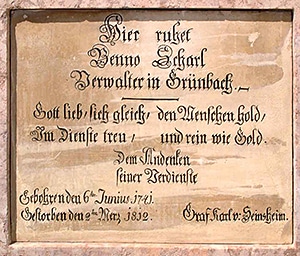 Hier ruhet
Benno Scharl
Verwalter in Grünbach.
Gott lieb, sich gleich, den Menschen hold,
Im Dienste treu, und rein wie Gold.
Dem Andenken
seiner Verdienste
Gebohren den 6ten Junius 1741.
Gestorben den 2ten Merz 1812. Graf Karl v: Seinsheim.